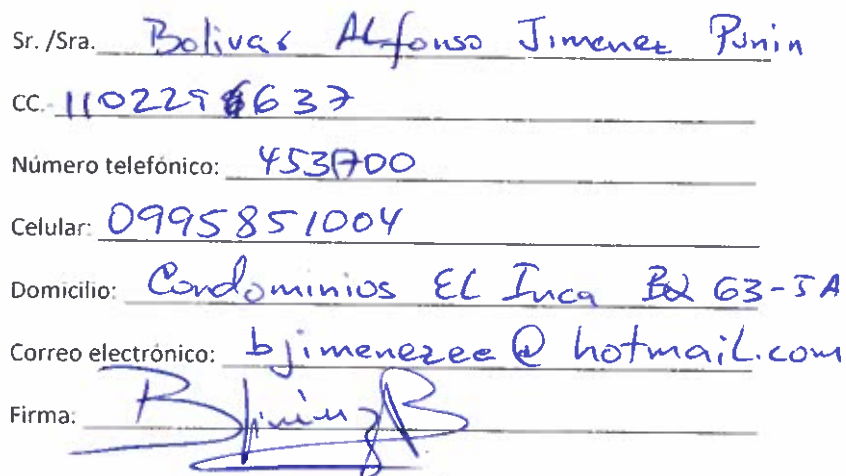 Sr./Sra. Bolivar Alfonso Jimenez Punin
CC.
Número telefónico: 453700
Celular: 0995851004
Domicilio: Condominios EL Inca 63-5A
Correo electrónico: bjimenezee@hotmail.com
Firma: